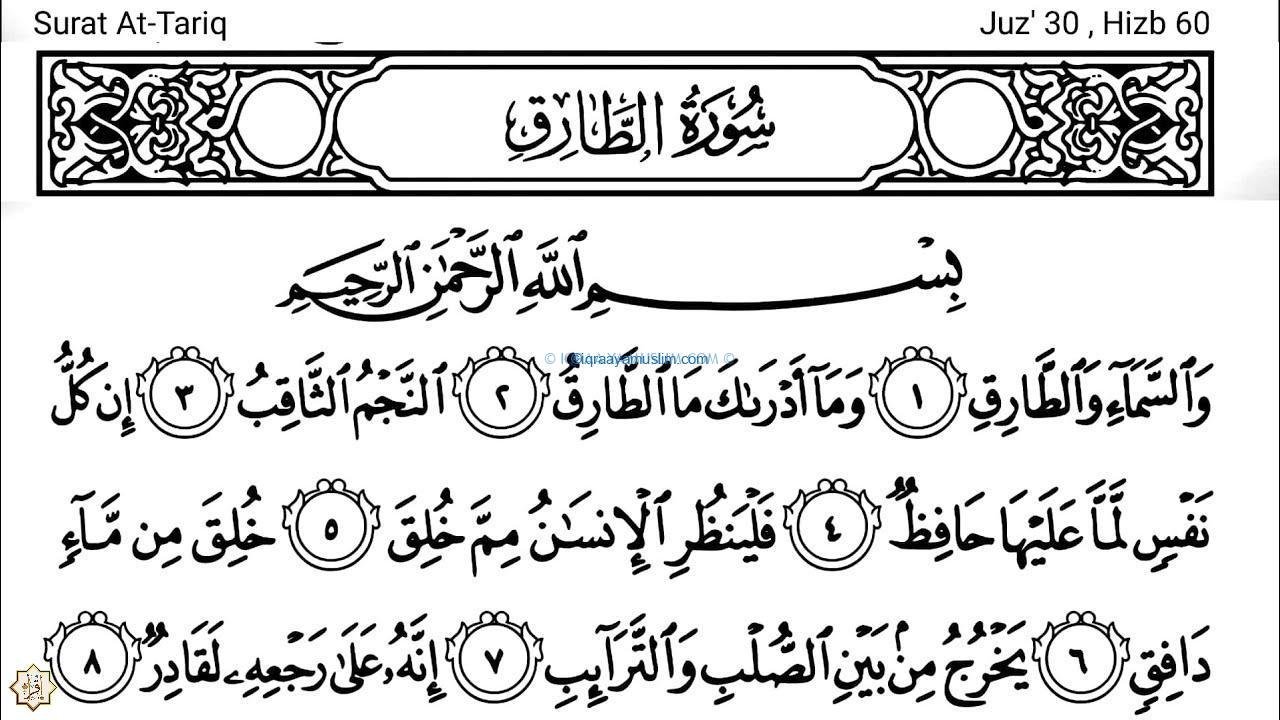 Surat At-Tariq
Juz' 30 , Hizb 60
سُورَةُ الطَّارِقِ
بِسْمِ ٱللَّهِ ٱلرَّحْمَٰنِ ٱلرَّحِيمِ
© iqraayamuslim.com ©
وَٱلسَّمَآءِ وَٱلطَّارِقِ ١ وَمَآ أَدْرَىٰكَ مَا ٱلطَّارِقُ ٢ ٱلنَّجْمُ ٱلثَّاقِبُ ٣ إِن كُلُّ
نَفْسٍ لَّمَّا عَلَيْهَا حَافِظٌ ٤ فَلْيَنظُرِ ٱلْإِنسَٰنُ مِمَّ خُلِقَ ٥ خُلِقَ مِن مَّآءٍ
دَافِقٍ ٦ يَخْرُجُ مِنۢ بَيْنِ ٱلصُّلْبِ وَٱلتَّرَآئِبِ ٧ إِنَّهُۥ عَلَىٰ رَجْعِهِۦ لَقَادِرٌ ٨